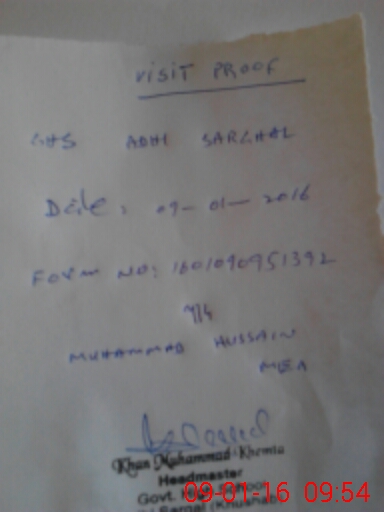 VISIT PROOF
GHS ADHI SARGHAL
Date: 09-01-2016
FORM NO: 1601090951392
MUHAMMAD HUSSAIN
MEA
Khan Muhammad Khemta
Headmaster
Govt. School
09-01-16 09:54